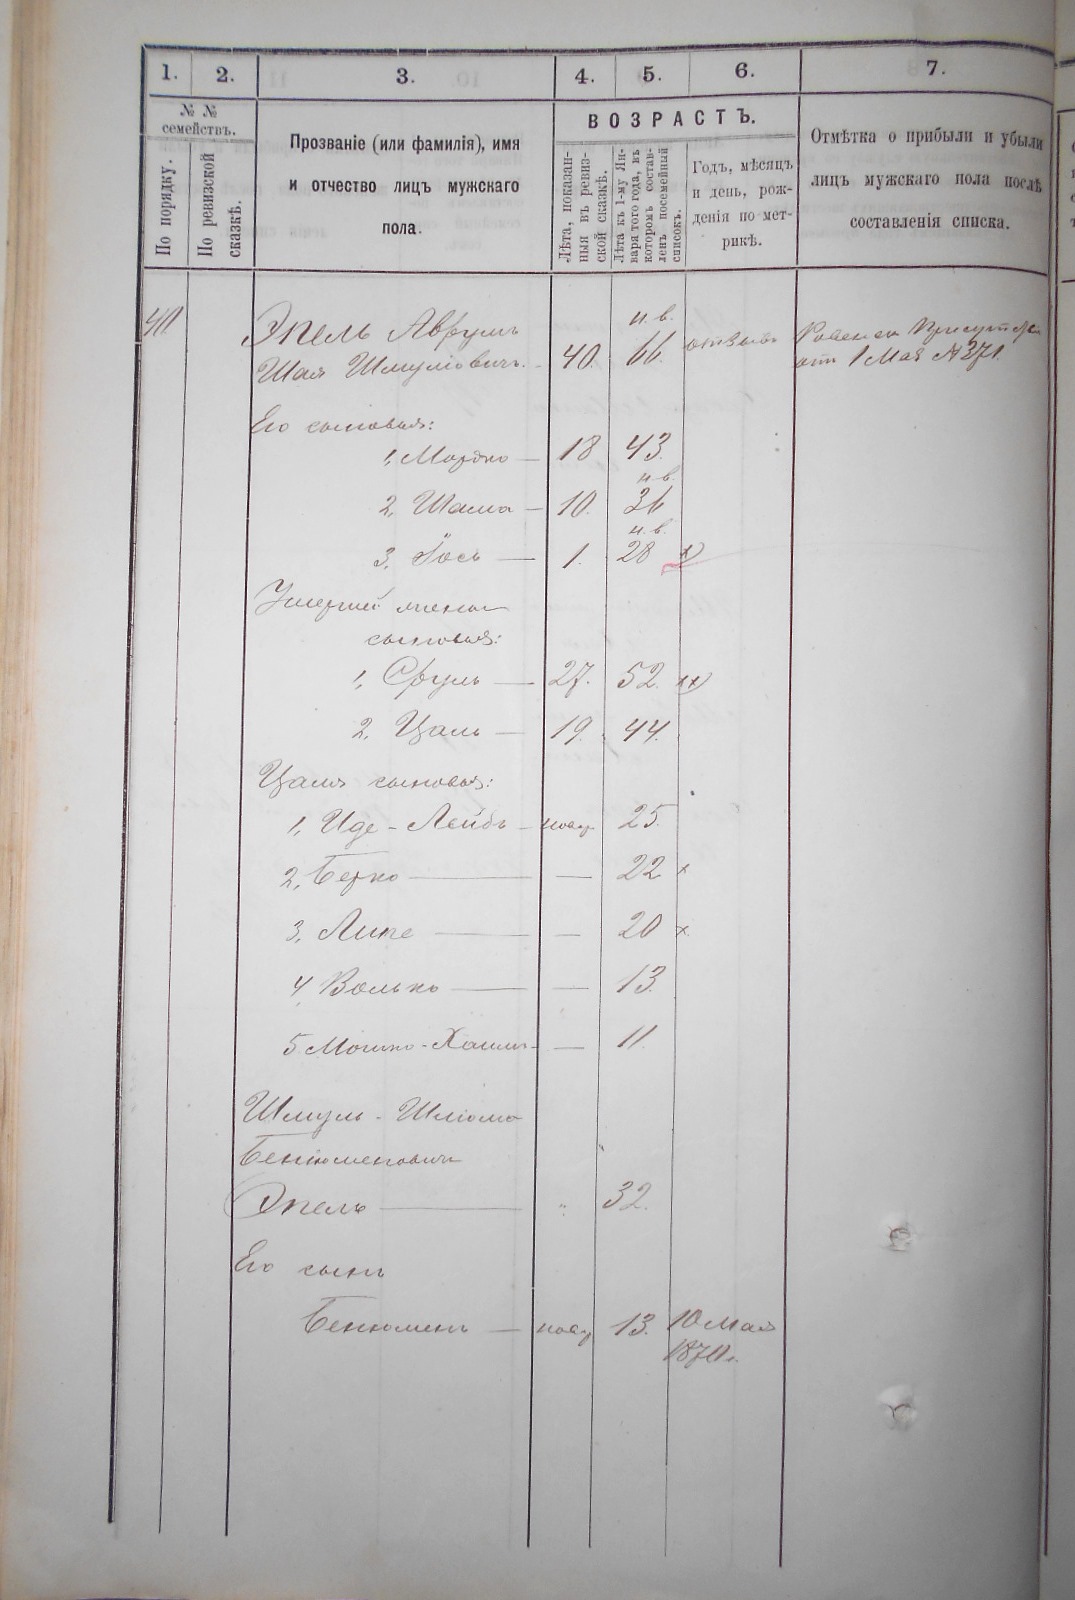 1. 2. 3. 4. 5. 6. 7.
№ №
семействъ.
По порядку.
По ревизской
сказкѣ.
Прозваніе (или фамилія), имя
и отчество лицъ мужскаго
пола.
ВОЗРАСТЪ.
Лѣта, показан-
ныя въ ревиз-
ской сказкѣ.
Лѣта къ 1-му Ян-
варя того года, въ
которомъ состав-
ленъ посемейный
списокъ.
Годъ, мѣсяцъ
и день, рож-
денія по мет-
рикѣ.
Отмѣтка о прибыли и убыли
лицъ мужскаго пола послѣ
составленія списка.
Эпель Аврумъ н. в.
Шая Шмуліовичъ. 40. 66.
отъ 1 Мая № 371.
Его сыновья:
1, Мордко — 18 43.
н. в.
2, Шама — 10. 36
н. в.
3, Іось — 1. 28 х)
сыновья:
1, Сруль — 27. 52. хх)
2, Цаль — 19. 44.
Цаля сыновья:
1, Иде-Лейбъ — 25.
2, Берко — — 22 х
3, Липе — — 20 х
4, Волько — — 13.
5 Мошко-Хаимъ — — 11.
Шмуль-Шліома
Бенюменовичъ
Эпель — „ 32.
Его сынъ
Бенюменъ — 13. 10 Мая
1870 г.